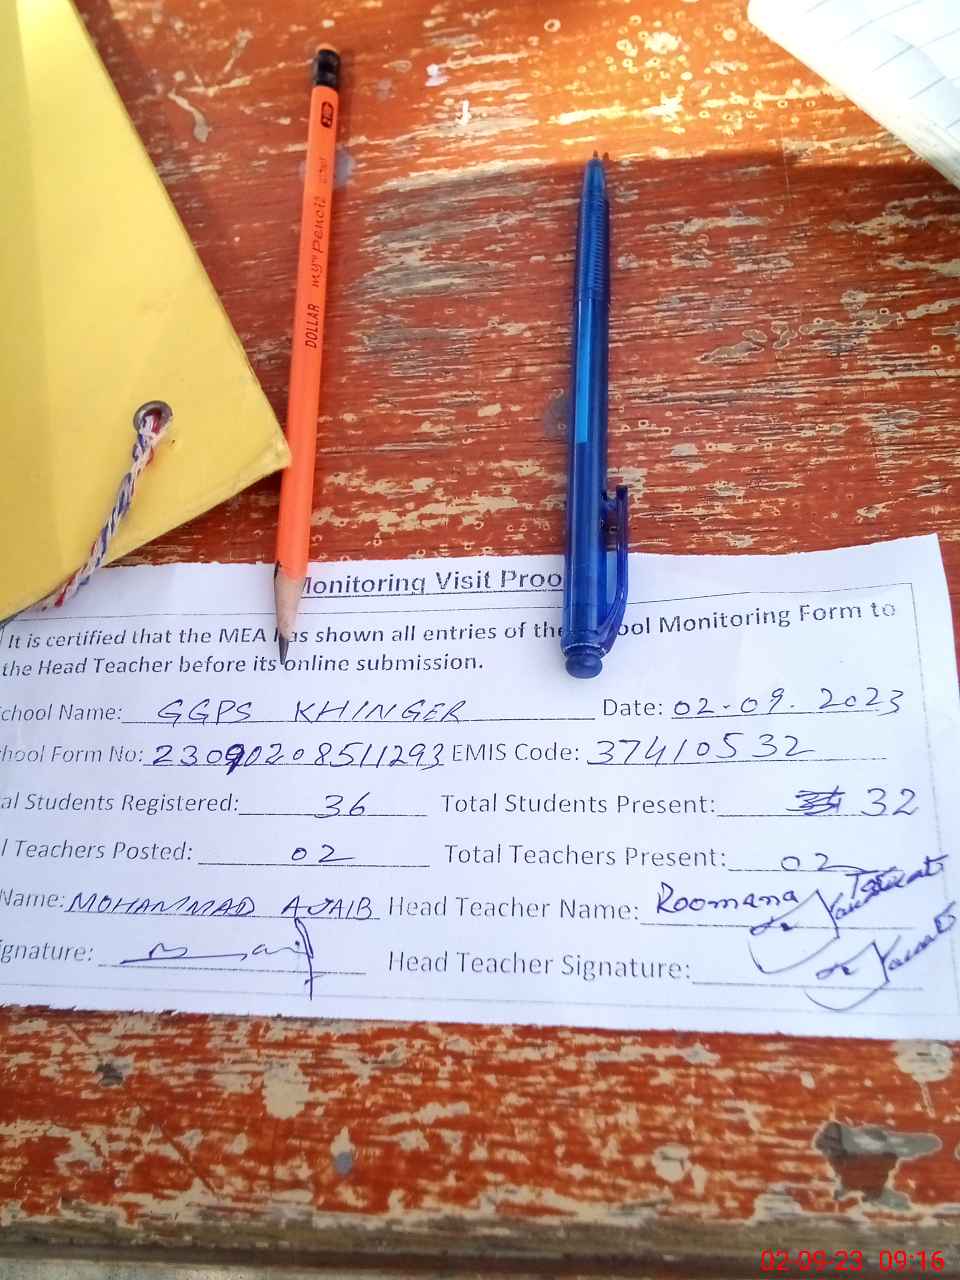 DOLLAR my pencil
Monitoring Visit Proo
It is certified that the MEA has shown all entries of the ool Monitoring Form to
the Head Teacher before its online submission.
chool Name: GGPS KHINGER Date: 02-09-2023
hool Form No: 23090208511293 EMIS Code: 37410532
al Students Registered: 36 Total Students Present: 32
l Teachers Posted: 02 Total Teachers Present: 02
Name: MOHAMMAD AJAIB Head Teacher Name: Roomana
ignature: Head Teacher Signature:
02-09-23 09:16